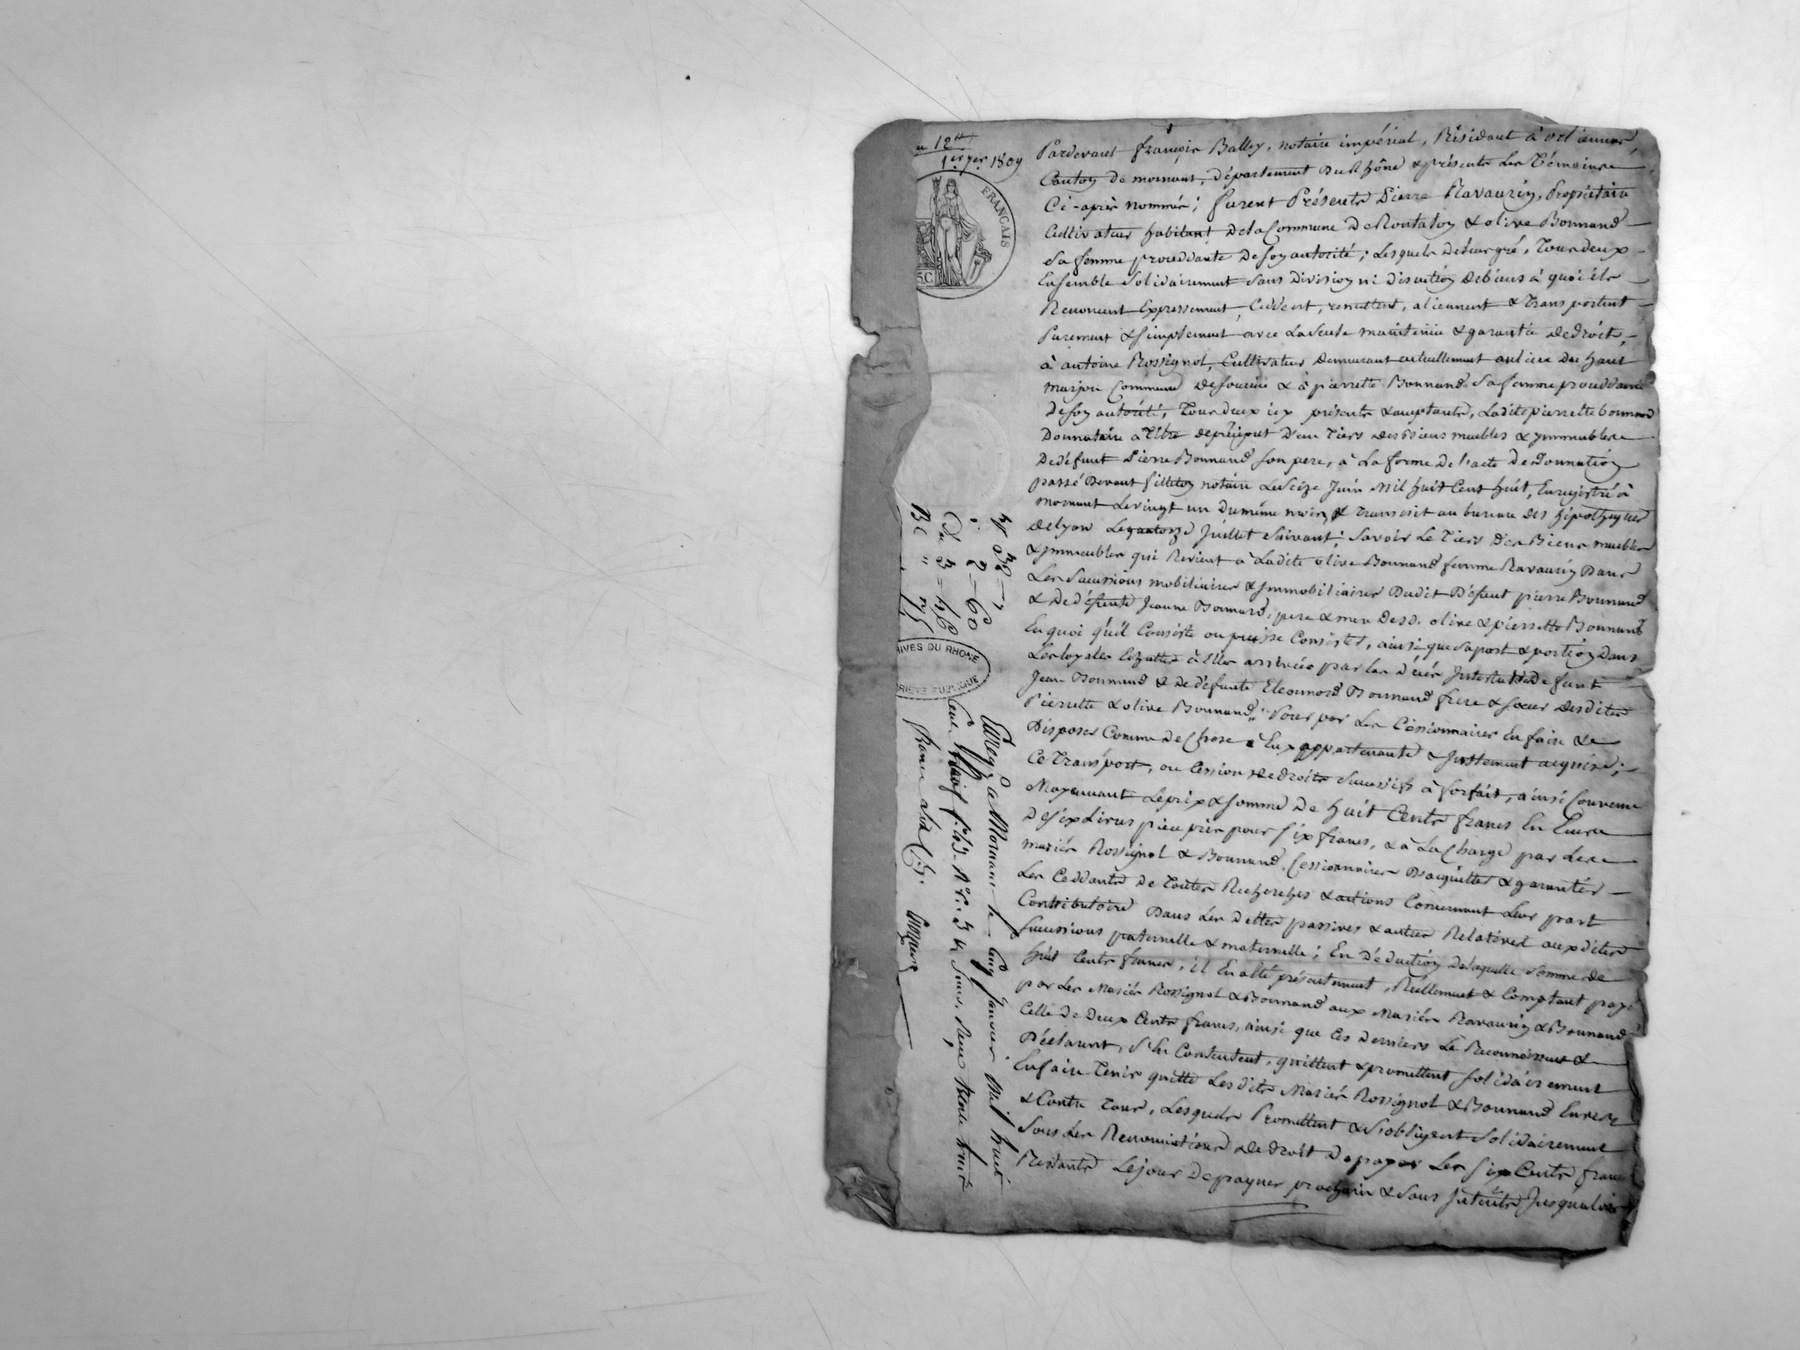 1er 7er 1809
FRANÇAIS
5C
Pardevant françois Balley, notaire impérial, Résidant à orliennas,
Canton de mornant, département du Rhône & présents Les Témoins
Ci-après nommés; furent Présents Pierre Ravaurin, Propriétaire
Cultivateur habitant de la Commune de Montaloy & olive Bonnand
Sa femme procédante de son autorité; Lesquels de leur gré, Tous deux
Ensemble Solidairement sans Division ni discution de biens à quoi ils
Renoncent Expressement, Cèddent, remettent, aliennent & Transportent
Purement & simplement avec La seule maintenüe & garantie de droit,
à antoine Rossignol, Cultivateur demeurant actuellement au lieu du haut
marjon Commune de soucieu & à pierrette Bonnand Sa femme procédante
de son autorité, Tous deux icy présents & acceptants, Ladite pierrette bonnand
Donnataire à Titre de préciput d'un Tiers des biens meubles & immeubles
de défunt Pierre Bonnand son père, à La forme de l'acte de donnation
passé devant filliton notaire Le Seize Juin Mil huit Cent huit, Enregistré à
mornant Le vingt un du même mois, & transcrit au bureau des hipothèques
de Lyon Le quatorze Juillet Suivant; Savoir Le Tiers des Biens meubles
& immeubles qui Revient à Ladite olive Bonnand femme Ravaurin Dans
Les Successions mobiliaires & immobiliaires Dudit Défunt pierre Bonnand
& de défunte Jeanne Bonnard, père & mère desd. olive & pierrette Bonnand
En quoi qu'il Consiste ou puisse Consister, ainsi que sa part & portion Dans
Les loyales Echuttes à Elles arrivées par les décès Intestats de défunt
Jean Bonnand & de défunte Eleonnord Bonnand frère & sœur desdites
Pierrette & olive Bonnand; Pour par Les Cessionnaires En faire &
Disposer Comme de Chose à Eux appartenante & Justement acquise;
Ce Transport, ou Cession de droits Successifs à forfait, ainsi Convenu
Moyennant Le prix & somme de huit Cents francs En Ecus
de six Livres pièce pris pour six francs, & à La Charge par Les
mariés Rossignol & Bonnand Cessionnaires D'acquitter & garantir
Les Ceddants de Toutes Recherches & actions Concernant Leur part
Contributoire Dans Les dettes passives & autres Relatives aux dites
Successions paternelle & maternelle; En Déduction de laquelle Somme de
huit Cents francs, il En a été présentement, Réellement & Comptant payé
par Les Mariés Rossignol & Bonnand aux Mariés Ravaurin & Bonnand
Celle de Deux Cents francs, ainsi que Ces Derniers Le Reconnoissent &
Déclarent, S'En Contentent, quittent & promettent solidairement
En faire Tenir quitte Lesdits Mariés Rossignol & Bonnand Envers
& Contre Tous, Lesquels Promettent & s'obligent Solidairement
Sous Les Renonciations de droit De payer Les six Cents francs
Restants Le jour de pâques prochain & sans Intérêts Jusqu'alors
32
2 = 60
3 = 46
ARCHIVES DU RHÔNE
Enreg. à Mornant le Cinq Janvier Mil huit
Cent Neuf f. 43. Reçu trente huit
francs six Cts.